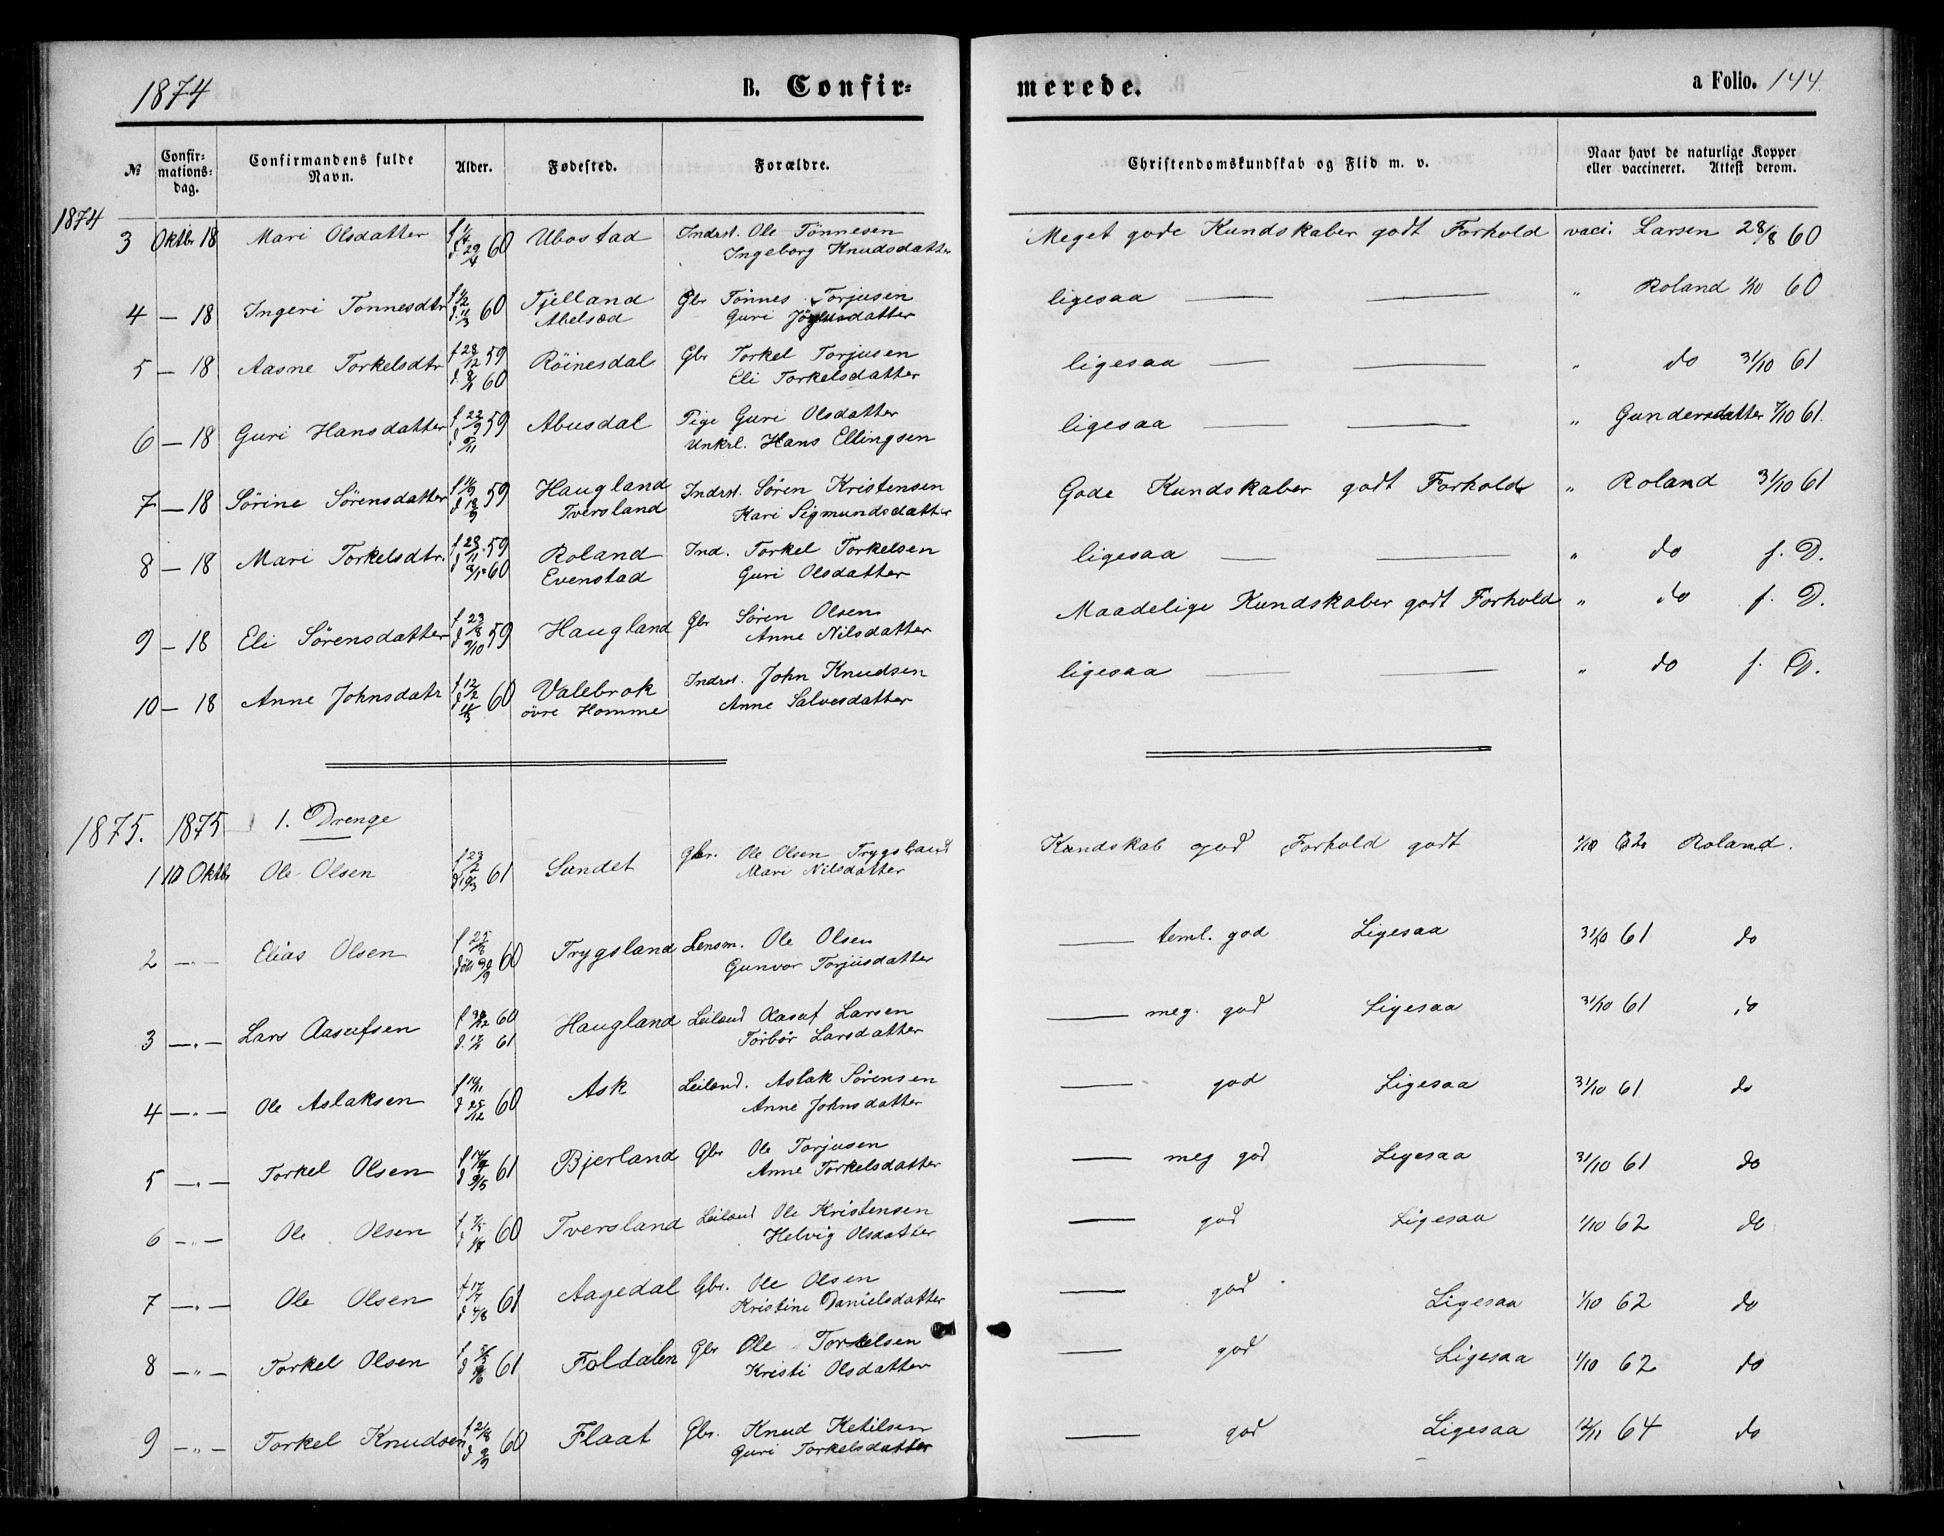 1874 B. Confir- merede. a Folio. 144
№ Confir- mations- dag. Confirmandens fulde Navn. Alder. Fødested. Forældre. Christendomskundskab og Flid m. v. Naar havt de naturlige Kopper eller vaccineret. Attest derom.
1874
3 Oktbr 18 Mari Olsdatter 60 Ubostad Indrst. Ole Tönnesen Meget gode Kundskaber godt Forhold vaci. Larsen 28/8 60
d 29/4 Ingeborg Knudsdatter
4 — 18 Ingeri Tonnesdtr 60 Tjelland Gbr Tönnes Torjusen ligesaa — — " Roland 1/10 60
Abelsæd Guri
5 — 18 Aasne Torkelsdtr f 28/12 59 Röinesdal Gbr Torkel Torjusen ligesaa — — " do 31/10 61
60 Eli Torkelsdatter
6 — 18 Guri Hansdatter 59 Abusdal Pige Guri Olsdatter ligesaa — — " Gundersdatter 7/10 61.
Unkrl. Hans Ellingsen
7 — 18 Sörine Sörensdatter 59 Haugland Indrst. Sören Kristensen Gode Kundskaber godt Forhold " Roland 31/10 61
Tversland Kari Sigmundsdatter
8 — 18 Mari Torkelsdtr. f 28/11 59 Roland Ind. Torkel Torkelsen ligesaa — — " do f. D.
60 Evenstad Guri Olsdatter
9 — 18 Eli Sörensdatter f 23/8 59 Haugland Gbr Sören Olsen Maadelige Kundskaber godt Forhold " do f. D.
Anne Nilsdatter
10 — 18 Anne Johnsdatr f 12/2 60 Valebrok Indrst. John Knudsen ligesaa — — " do f. D.
övre Homme Anne Salvesdatter
1875. 1875 1. Drenge
1 10 Oktbr Ole Olsen f 23/2 61 Sundet gbr. Ole Olsen Trygsland Kundskab god Forhold godt 1/10 62 Roland.
Mari Nilsdatter
2 —"— Elias Olsen 60 Trygsland Lensm. Ole Olsen — teml. god Ligesaa 31/10 61 do
Gunvor Torjusdatter
3 —"— Lars Aasufsen 60 Haugland Leiland Aasuf Larsen — meg. god Ligesaa 31/10 61 do
61 Torbör Larsdatter
4 —"— Ole Aslaksen 60 Ask Leiland. Aslak Sörensen — god Ligesaa 31/10 61 do
d 25/12 Anne Johnsdatter
5 —"— Torkel Olsen 61 Bjerland Gbr Ole Torjusen — meg god Ligesaa 31/10 61 do
d 9/5 Anne Torkelsdatter
6 —"— Ole Olsen 60 Tversland Leiland Ole Kristensen — god Ligesaa 1/10 62 do
Helvig Olsdatter
7 —"— Ole Olsen f 17/7 61 Aagedal Gbr. Ole Olsen — god Ligesaa 1/10 62 do
Kristine Danielsdatter
8 —"— Torkel Olsen 61 Foldalen Gbr Ole Torkelsen — god Ligesaa 1/10 62 do
Kristi Olsdatter
9 —"— Torkel Knudsen f 21/8 60 Flaat Gbr. Knud Ketilsen — god Ligesaa 12/11 64 do
d 9/9 Guri Torkelsdatter